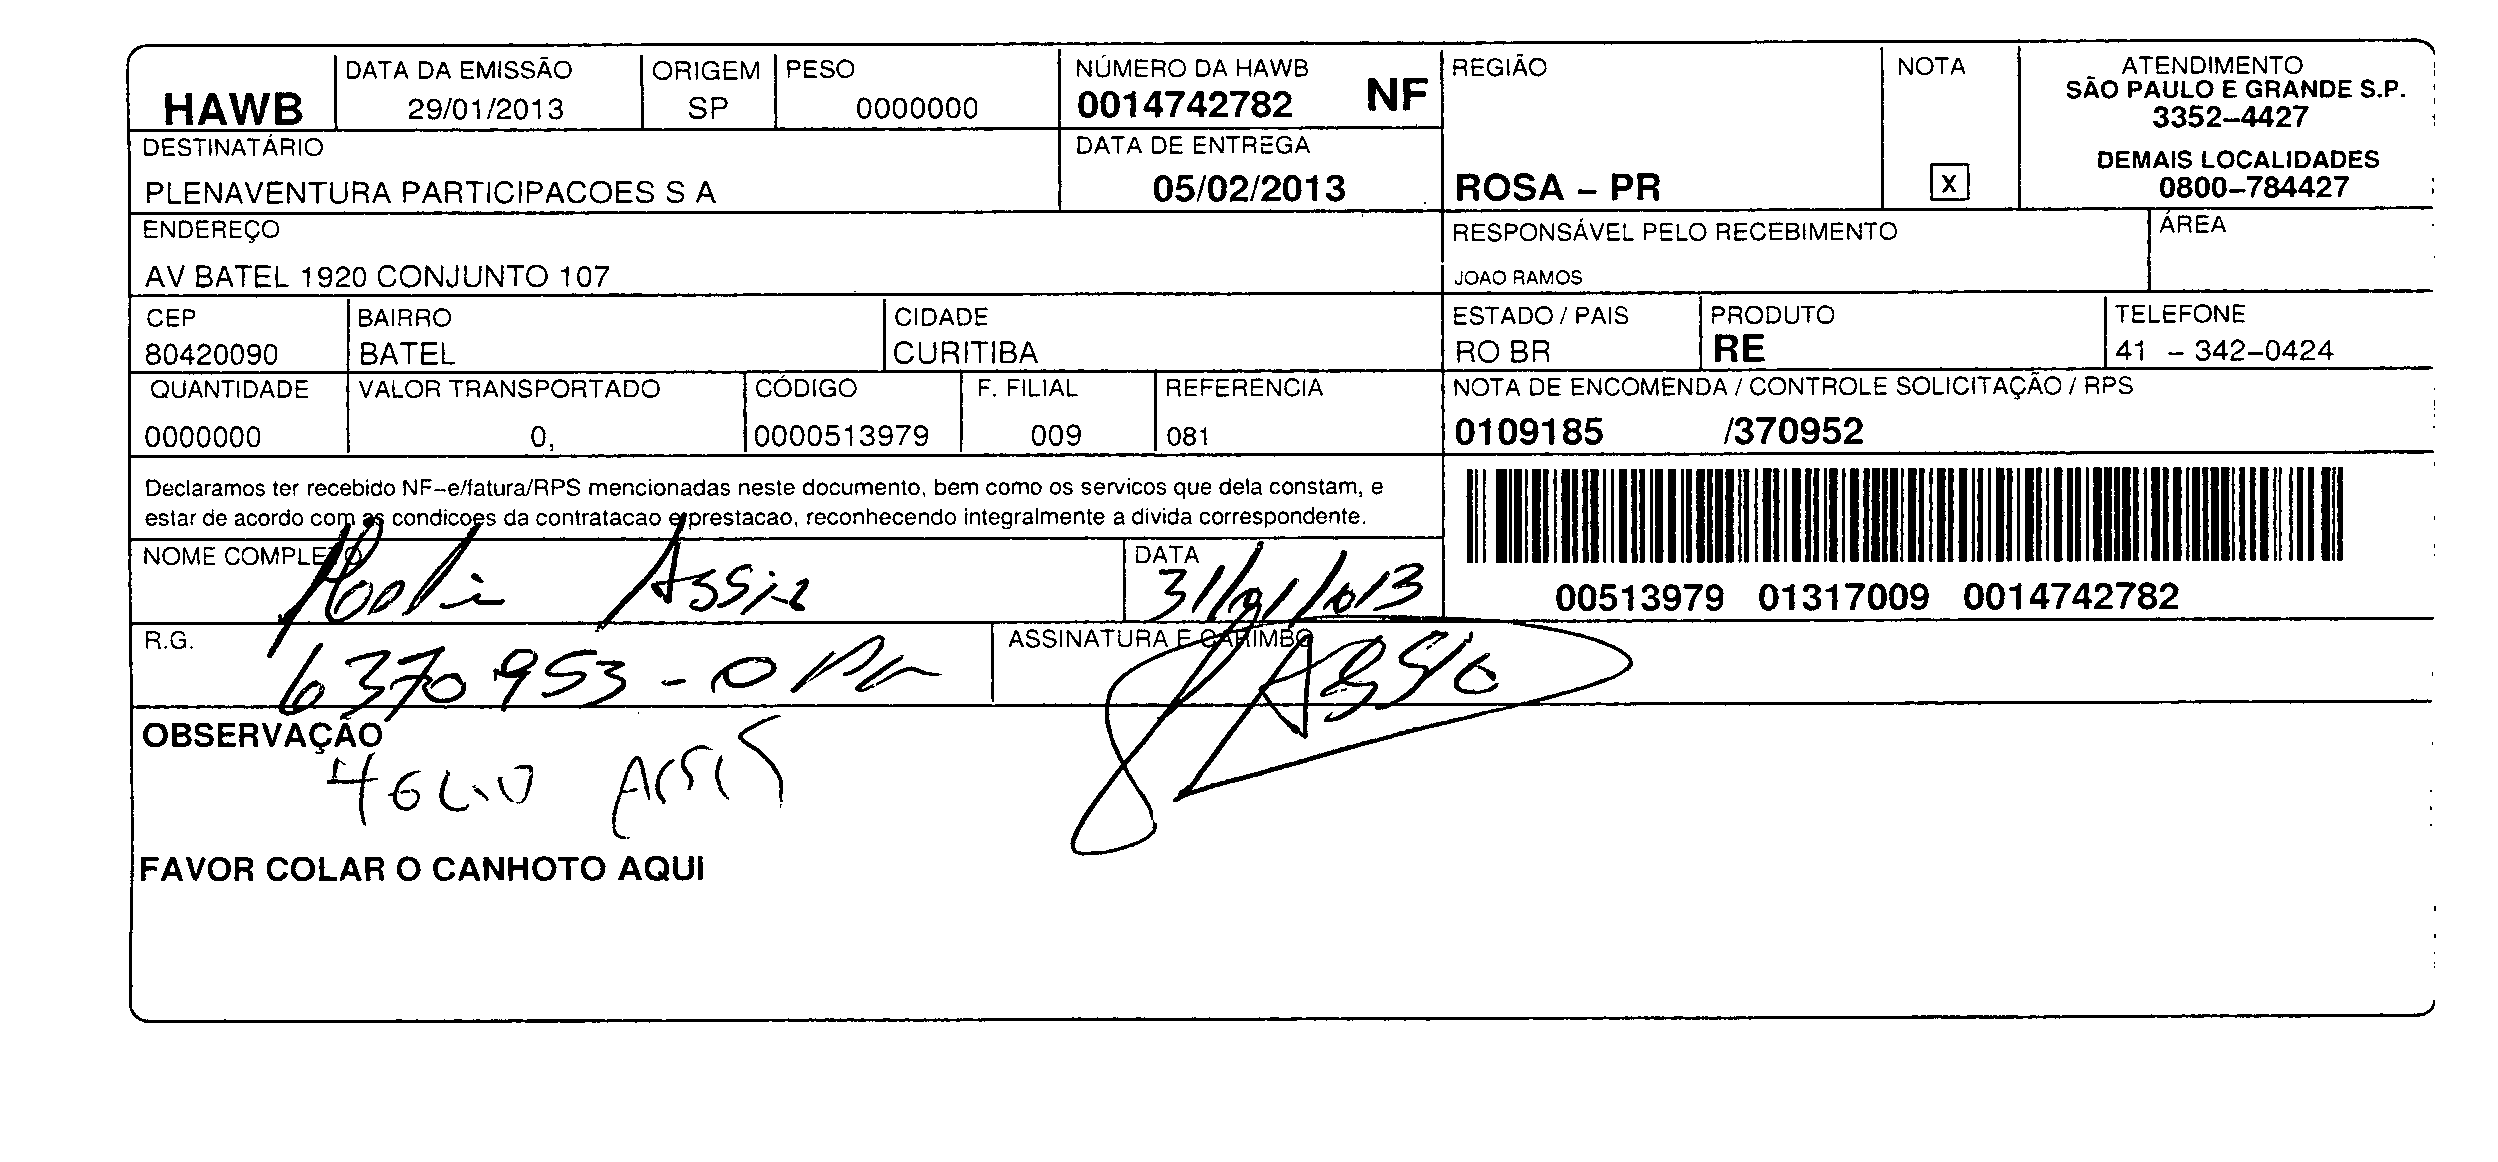 HAWB
DATA DA EMISSÃO
29/01/2013
ORIGEM
SP
PESO
0000000
NÚMERO DA HAWB
0014742782 NF
REGIÃO
ROSA – PR
NOTA
X
ATENDIMENTO
SÃO PAULO E GRANDE S.P.
3352–4427
DEMAIS LOCALIDADES
0800–784427
DESTINATÁRIO
PLENAVENTURA PARTICIPACOES S A
DATA DE ENTREGA
05/02/2013
ENDEREÇO
AV BATEL 1920 CONJUNTO 107
RESPONSÁVEL PELO RECEBIMENTO
JOAO RAMOS
ÁREA
CEP
80420090
BAIRRO
BATEL
CIDADE
CURITIBA
ESTADO / PAIS
RO BR
PRODUTO
RE
TELEFONE
41 – 342–0424
QUANTIDADE
0000000
VALOR TRANSPORTADO
0,
CÓDIGO
0000513979
F. FILIAL
009
REFERENCIA
081
NOTA DE ENCOMENDA / CONTROLE SOLICITAÇÃO / RPS
0109185 /370952
Declaramos ter recebido NF–e/fatura/RPS mencionadas neste documento, bem como os servicos que dela constam, e
estar de acordo com as condicoes da contratacao e prestacao, reconhecendo integralmente a divida correspondente.
00513979 01317009 0014742782
NOME COMPLETO
Assis
DATA
31/01/2013
R.G.
6370953-0 PR
ASSINATURA E CARIMBO
OBSERVAÇÃO
ASSIS
FAVOR COLAR O CANHOTO AQUI